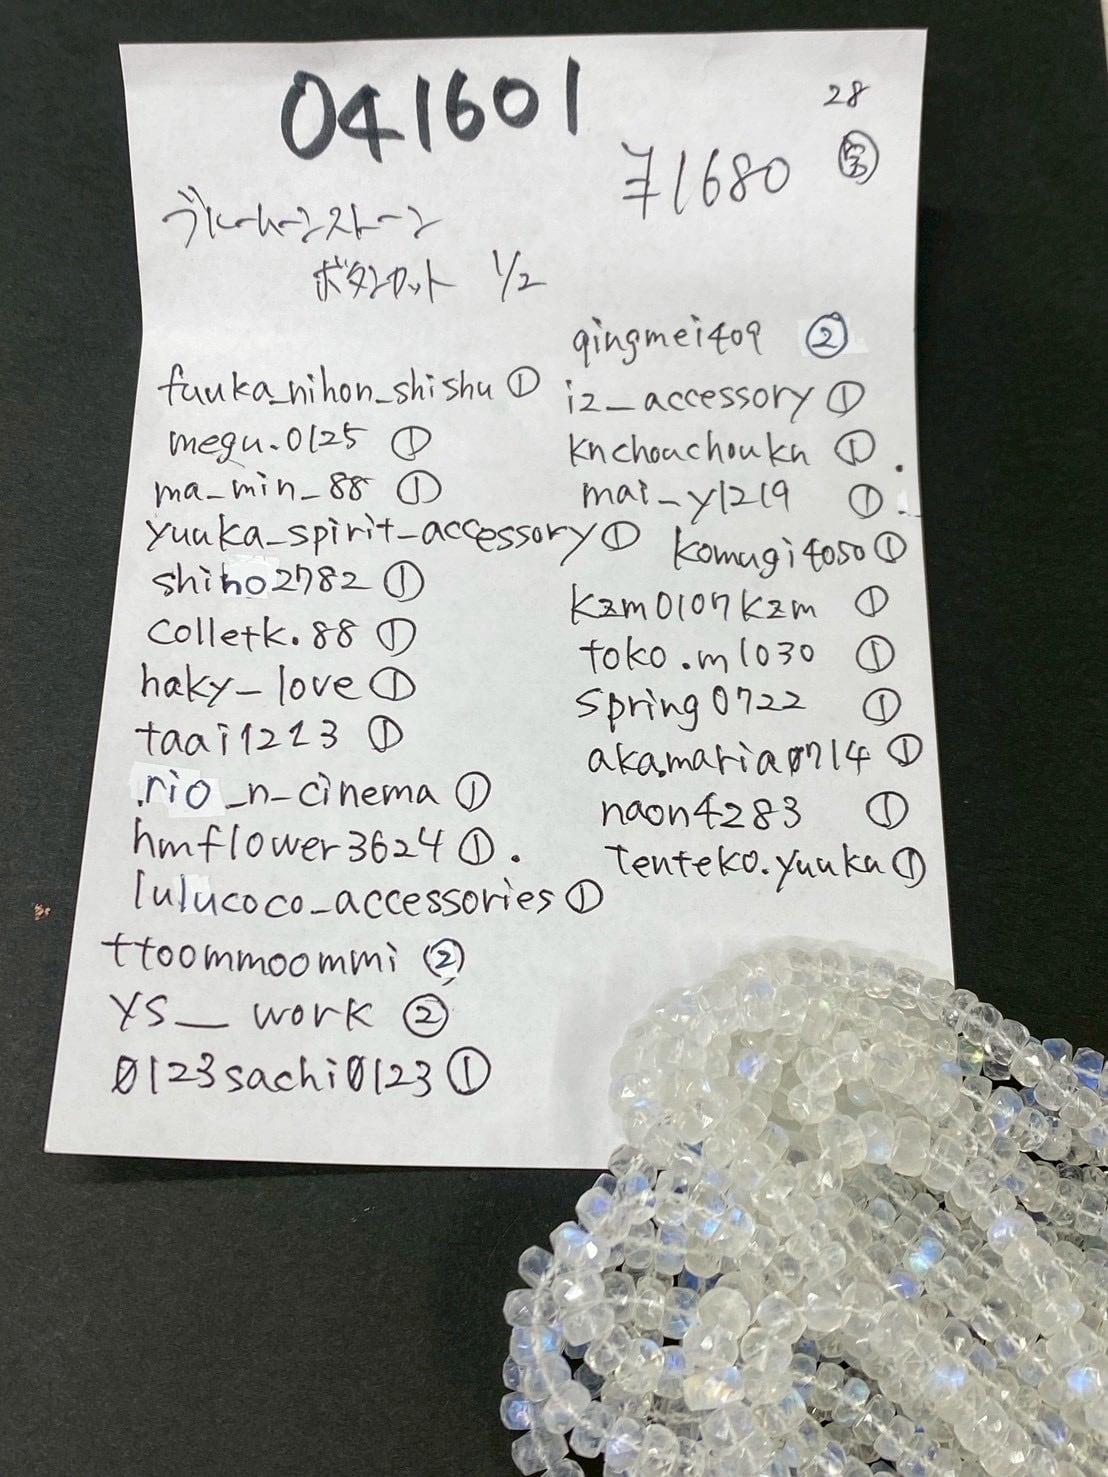 041601
28
¥1680 完
ブルームーンストーン
ボタンカット 1/2
fuuka_nihon_shishu ①
megu.0125 ①
ma_min_88 ①
yuuka_spirit_accessory ①
shiho2782 ①
colletk.88 ①
haky_love ①
taai1213 ①
.rio_n_cinema ①
hmflower3624 ①.
lulucoco_accessories ①
ttoommoommi ②
YS__work ②
0123sachi0123 ①
qingmei409 ②
iz_accessory ①
knchouchoukn ①.
mai_y1219 ①.
komugi4050 ①
kzm0107kzm ①
toko.m1030 ①
spring0722 ①
akamaria0714 ①
naon4283 ①
tenteko.yuuka ①